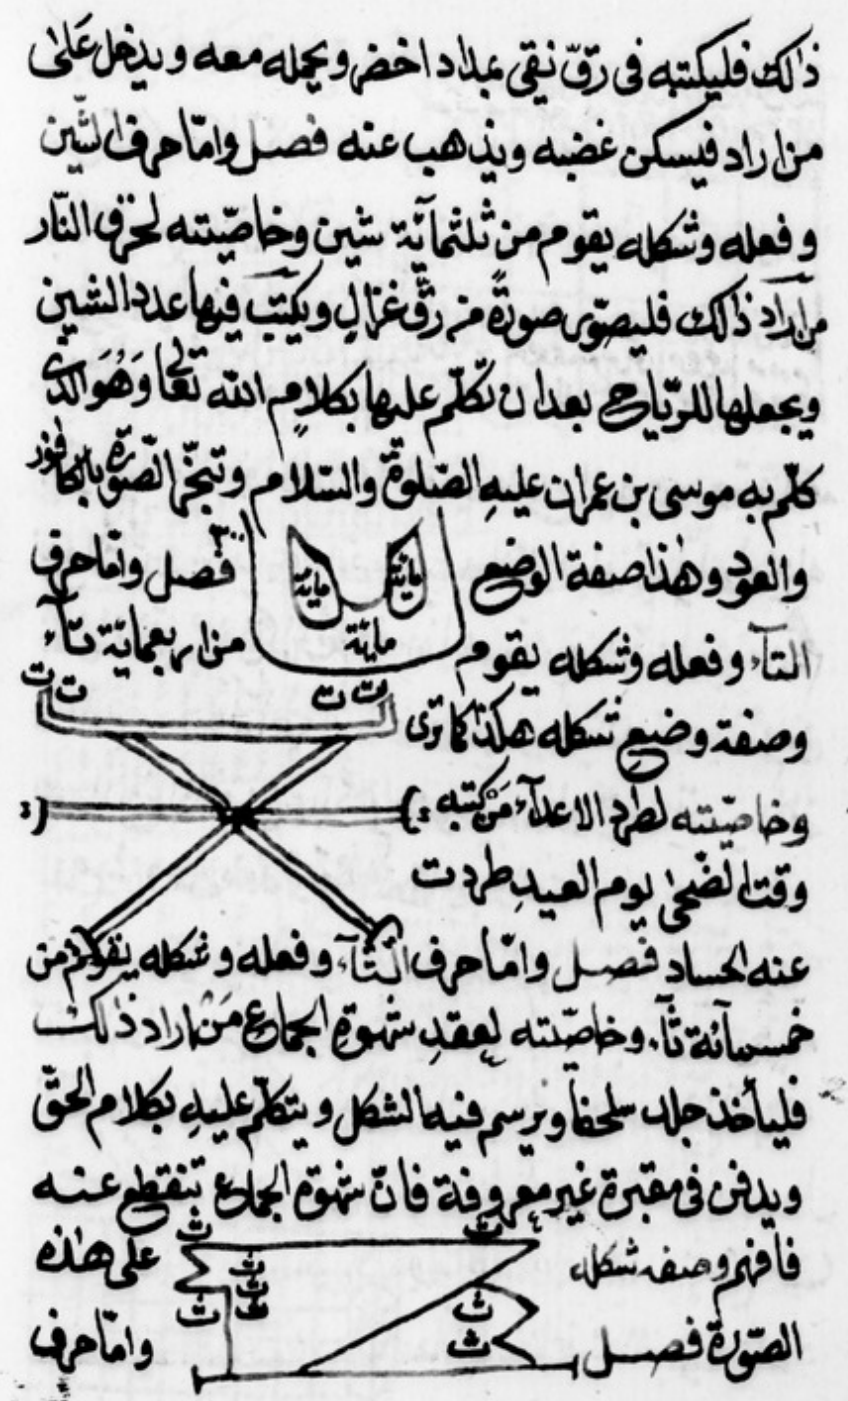 ذالك فليكتبه فى رقّ نقي بمداد اخضر ويحمله معه ويدخل عَلىٰ
من اراد فيسكن غضبه ويذهب عنه فصل وامّا حرف الشّين
وفعله وشكله يقوم من ثلثمآئة شين وخاصّيته لحرق النّار
من اراد ذالك فليصوّر صورةً من رقّ غزالٍ ويكتب فيها عدد الشين
ويجعلها للرّياح بعد ان تكلّم عليها بكلامِ الله تعالى وَهُوَ الذى
كلّم به موسى بن عمران عليهِ الصّلوة والسّلام وتبخّر الصّورة بالكافور
والعود وهٰذا صفة الوضع ٣٠٠ فصل وامّا حرف
مائة مائة
مائة
التآء وفعله وشكله يقوم من اربعمائة تآء
ت ت ت ت
وصفة وضع شكله هكذا كما ترى
وخاصّيته لطرد الاعدآء مَنْ كتبه
وقت الضّحىٰ يوم العيدِ طردت
عنه الحساد فصل وامّا حرف الثّآء وفعله وشكله يقوم من
خمسمآئة ثآء وخاصّيته لعقدِ شهوةِ الجماع مَنْ اراد ذالك
فليأخذ جلد سلحفا ويرسم فيه الشكل ويتكلّم عليهِ بكلام الحقّ
ويدفن فى مقبرة غير معروفة فانّ شهوة الجماع تنقطع عنه
ث ث
فافهم وصفة شكله على هٰذه
ث ث ث ث ث ث
الصّورة فصل وامّا حرف